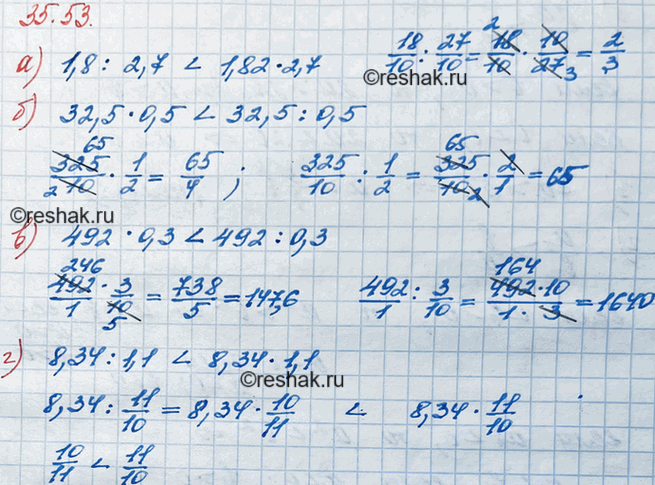 35.53.
а) 1,8 : 2,7 < 1,82 · 2,7    18/10 : 27/10 = 2 18/10 · 10/27 3 = 2/3
©reshak.ru
б) 32,5 · 0,5 < 32,5 : 0,5
65 325/10 2 · 1/2 = 65/4 ;    325/10 : 1/2 = 65 325/10 2 · 2/1 = 65
©reshak.ru
в) 492 · 0,3 < 492 : 0,3
246 492/1 · 3/10 5 = 738/5 = 147,6    492/1 : 3/10 = 164 492 · 10/1 · 3 = 1640
г) 8,34 : 1,1 < 8,34 · 1,1
©reshak.ru
8,34 : 11/10 = 8,34 · 10/11 < 8,34 · 11/10
10/11 < 11/10